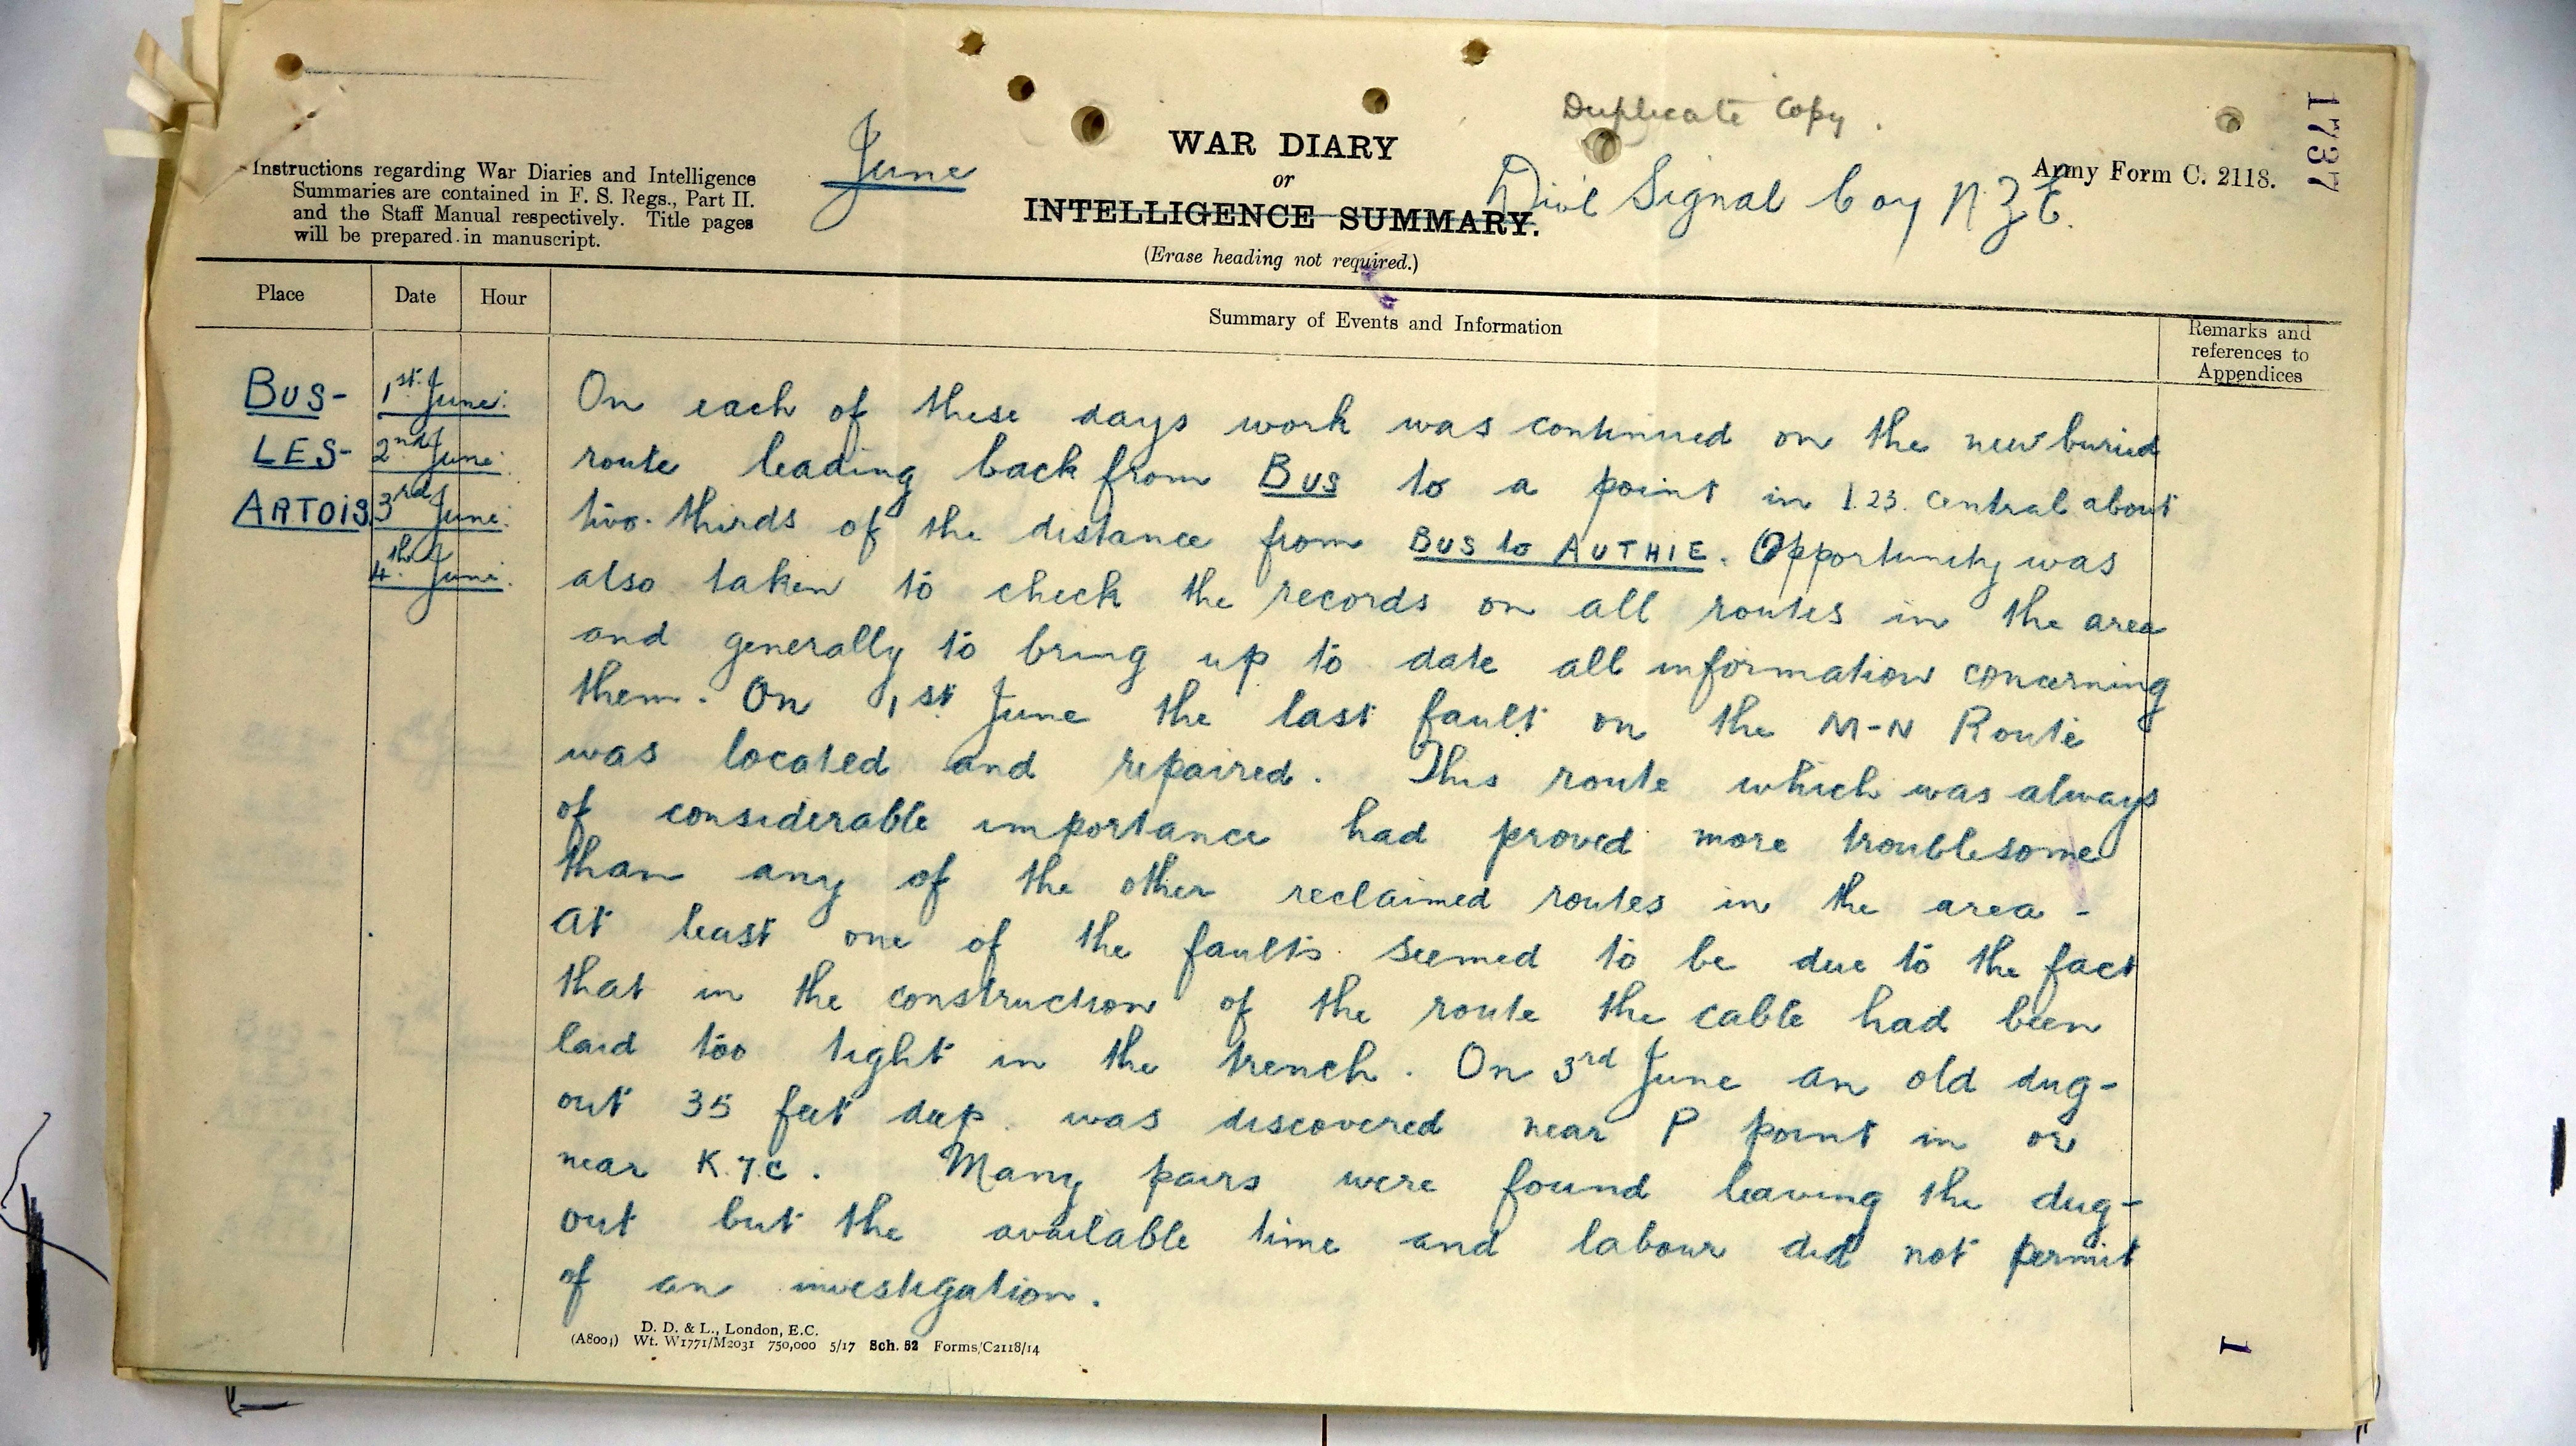 Duplicate Copy.
1737
June
WAR DIARY
or
INTELLIGENCE SUMMARY.
(Erase heading not required.)
Div'l Signal Coy N.Z.E.
Army Form C. 2118.
Instructions regarding War Diaries and Intelligence
Summaries are contained in F. S. Regs., Part II.
and the Staff Manual respectively. Title pages
will be prepared in manuscript.
Place Date Hour Summary of Events and Information Remarks and
references to
Appendices
BUS-
LES-
ARTOIS
1st June.
2nd June.
3rd June.
4th June.
On each of these days work was continued on the new buried
route leading back from BUS to a point in I.23. central about
two-thirds of the distance from BUS to AUTHIE. Opportunity was
also taken to check the records on all routes in the area
and generally to bring up to date all information concerning
them. On 1st June the last fault on the M-N Route
was located and repaired. This route which was always
of considerable importance had proved more troublesome
than any of the other reclaimed routes in the area -
at least one of the faults seemed to be due to the fact
that in the construction of the route the cable had been
laid too tight in the trench. On 3rd June an old dug-
out 35 feet deep was discovered near P point in or
near K.7.c. Many pairs were found leaving the dug-
out but the available time and labour did not permit
of an investigation.
D. D. & L., London, E.C.
(A8001) Wt. W1771/M2031 750,000 5/17 Sch. 52 Forms/C2118/14
1